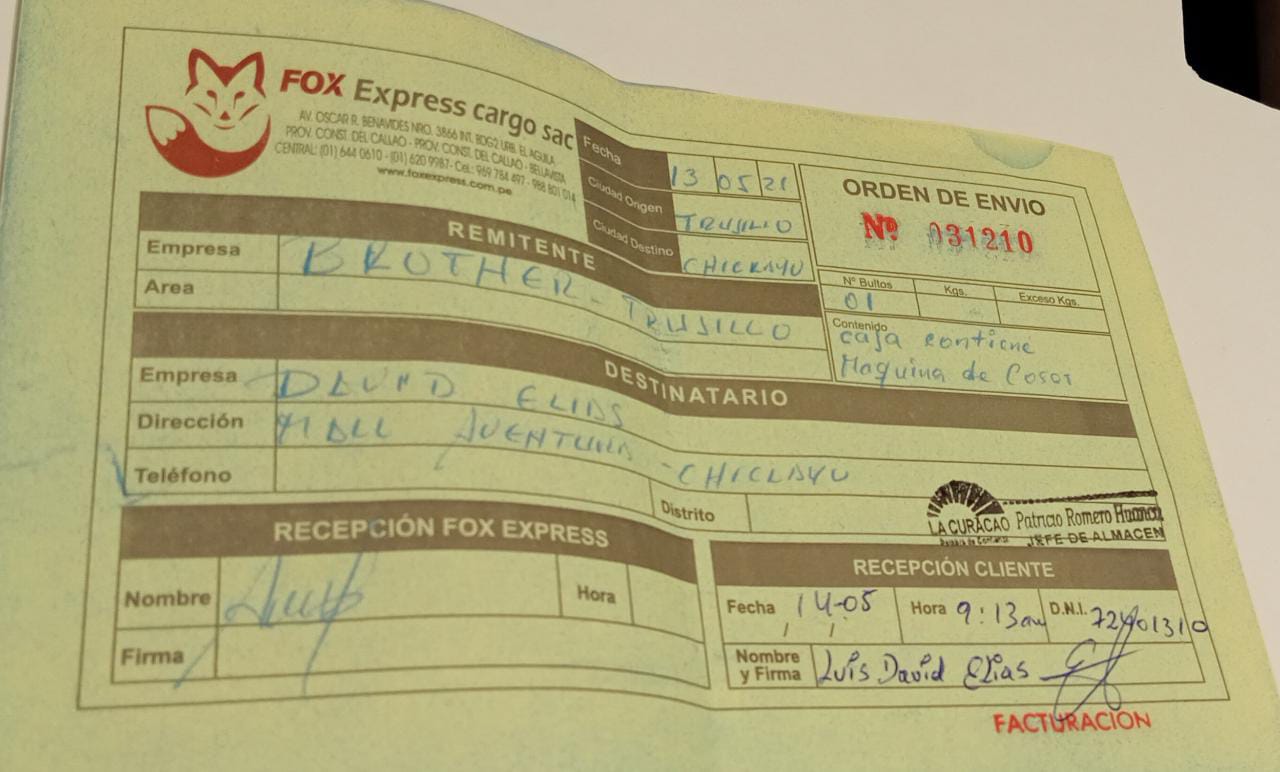 FOX Express cargo sac
AV. OSCAR R. BENAVIDES NRO. 3866 INT. BDG2 URB. EL AGUILA
PROV. CONST. DEL CALLAO - PROV. CONST. DEL CALLAO - BELLAVISTA
CENTRAL: (01) 644 0610 - (01) 620 9987- Cel.: 969 784 497 - 988 801 014
www.foxexpress.com.pe
Fecha 13 05 21
Ciudad Origen TRUJILLO
Ciudad Destino CHICLAYO
ORDEN DE ENVIO
Nº 031210
Nº Bultos Kgs. Exceso Kgs.
01
Contenido
caja contiene
Maquina de Coser
REMITENTE
Empresa BROTHER - TRUJILLO
Area
DESTINATARIO
Empresa DAVID ELIAS
Dirección MALL AVENTURA - CHICLAYO
Teléfono
Distrito
LA CURACAO Patricio Romero
JEFE DE ALMACEN
RECEPCIÓN FOX EXPRESS
Nombre Hora
Firma
RECEPCIÓN CLIENTE
Fecha 14-05 Hora 9:13am D.N.I.
Nombre y Firma Luis David Elias
FACTURACION